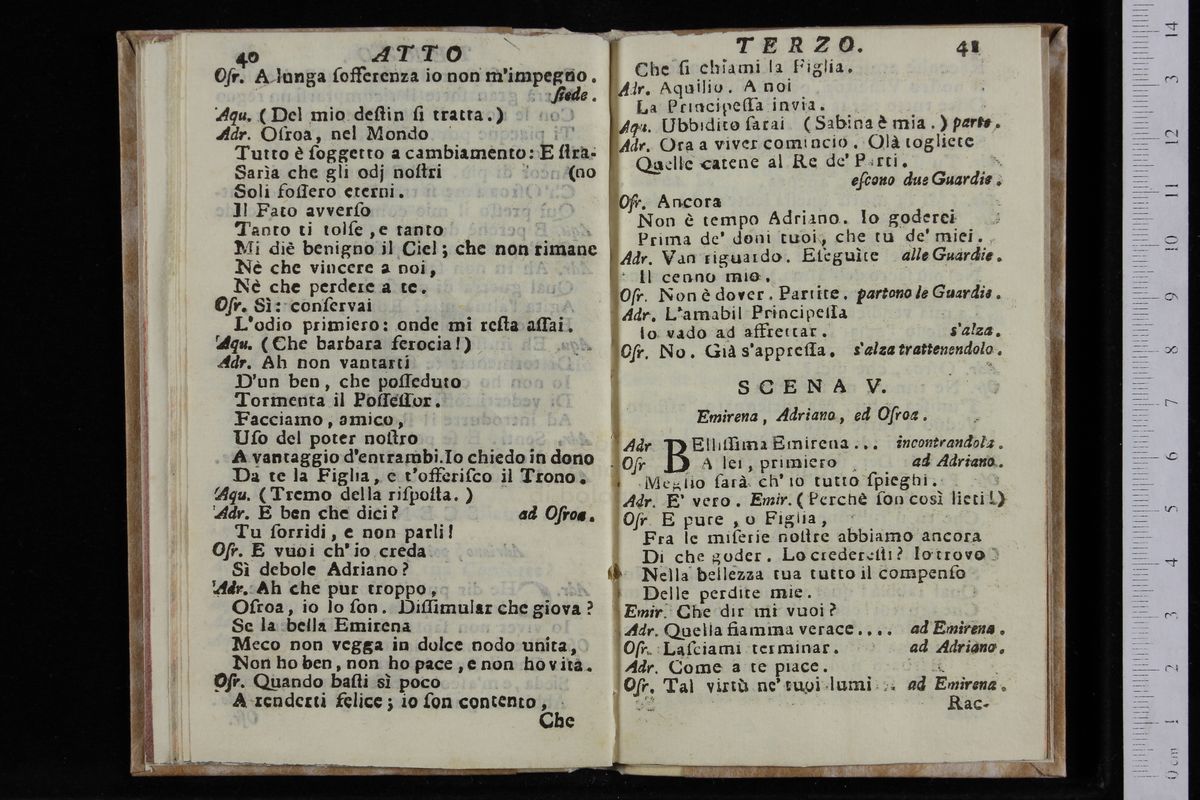 40 ATTO
Oſr. A lunga ſofferenza io non m'impegno.
ſiede.
Aqu. (Del mio deſtin ſi tratta.)
Adr. Oſroa, nel Mondo
Tutto è ſoggetto a cambiamento: E ſtra-
Saria che gli odj noſtri (no
Soli foſſero eterni.
Il Fato avverſo
Tanto ti tolſe, e tanto
Mi diè benigno il Ciel; che non rimane
Nè che vincere a noi,
Nè che perdere a te.
Oſr. Sì: conſervai
L'odio primiero: onde mi reſta aſſai.
Aqu. (Che barbara ferocia!)
Adr. Ah non vantarti
D'un ben, che poſſeduto
Tormenta il Poſſeſſor.
Facciamo, amico,
Uſo del poter noſtro
A vantaggio d'entrambi. Io chiedo in dono
Da te la Figlia, e t'offeriſco il Trono.
Aqu. (Tremo della riſpoſta.)
Adr. E ben che dici? ad Oſroa.
Tu ſorridi, e non parli!
Oſr. E vuoi ch'io creda
Sì debole Adriano?
Adr. Ah che pur troppo,
Oſroa, io lo ſon. Diſſimular che giova?
Se la bella Emirena
Meco non vegga in dolce nodo unita,
Non ho ben, non ho pace, e non ho vita.
Oſr. Quando baſti sì poco
A renderti felice; io ſon contento,
Che
TERZO. 41
Che ſi chiami la Figlia.
Adr. Aquilio. A noi
La Principeſſa invia.
Aqu. Ubbidito ſarai (Sabina è mia.) parte.
Adr. Ora a viver comincio. Olà togliete
Quelle catene al Re de' Parti.
eſcono due Guardie.
Oſr. Ancora
Non è tempo Adriano. Io goderei
Prima de' doni tuoi, che tu de' miei.
Adr. Van riguardo. Eſeguite alle Guardie.
Il cenno mio.
Oſr. Non è dover. Partite. partono le Guardie.
Adr. L'amabil Principeſſa
Io vado ad affrettar. s'alza.
Oſr. No. Già s'appreſſa. s'alza trattenendolo.
SCENA V.
Emirena, Adriano, ed Oſroa.
Adr BElliſſima Emirena... incontrandola.
Oſr A lei, primiero ad Adriano.
Meglio ſarà ch'io tutto ſpieghi.
Adr. E' vero. Emir. (Perchè ſon così lieti!)
Oſr E pure, o Figlia,
Fra le miſerie noſtre abbiamo ancora
Di che goder. Lo crederesti? Io trovo
Nella bellezza tua tutto il compenſo
Delle perdite mie.
Emir. Che dir mi vuoi?
Adr. Quella fiamma verace.... ad Emirena.
Oſr. Laſciami terminar. ad Adriano.
Adr. Come a te piace.
Oſr. Tal virtù ne' tuoi lumi ad Emirena.
Rac-
14
13
12
11
10
9
8
7
6
5
4
3
2
1
0 cm